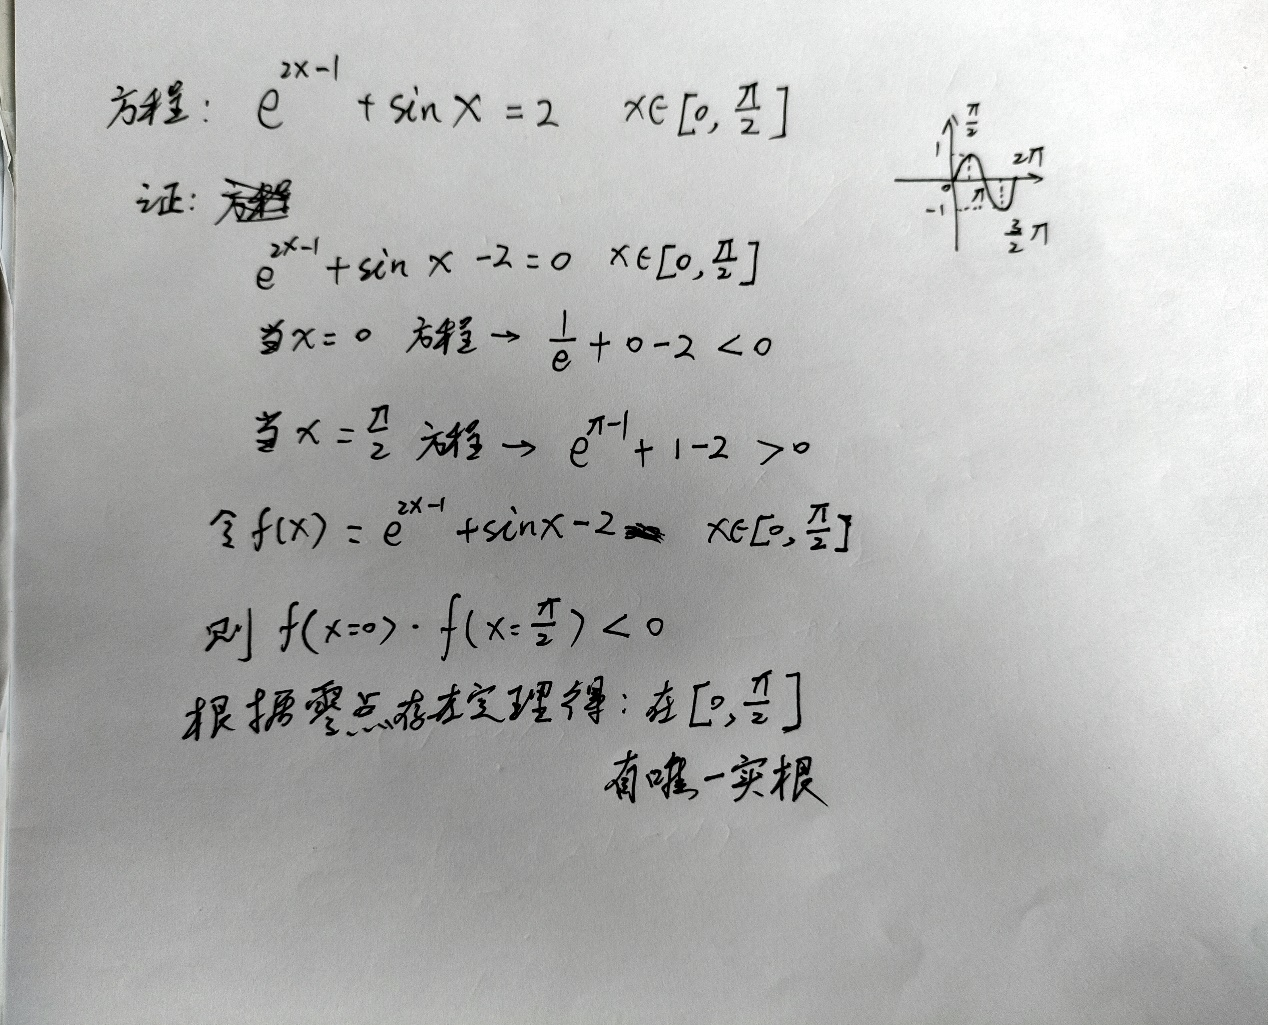 方程: e^{2x-1} + sin x = 2 x∈[0, π/2]
π/2
1
2π
0
π
-1
3/2 π
证:
e^{2x-1} + sin x - 2 = 0 x∈[0, π/2]
当x=0 方程→ 1/e + 0 - 2 < 0
当x=π/2 方程→ e^{π-1} + 1 - 2 > 0
令f(x) = e^{2x-1} + sinx - 2 x∈[0, π/2]
则 f(x=0)·f(x=π/2) < 0
根据零点存在定理得: 在[0, π/2]
有唯一实根